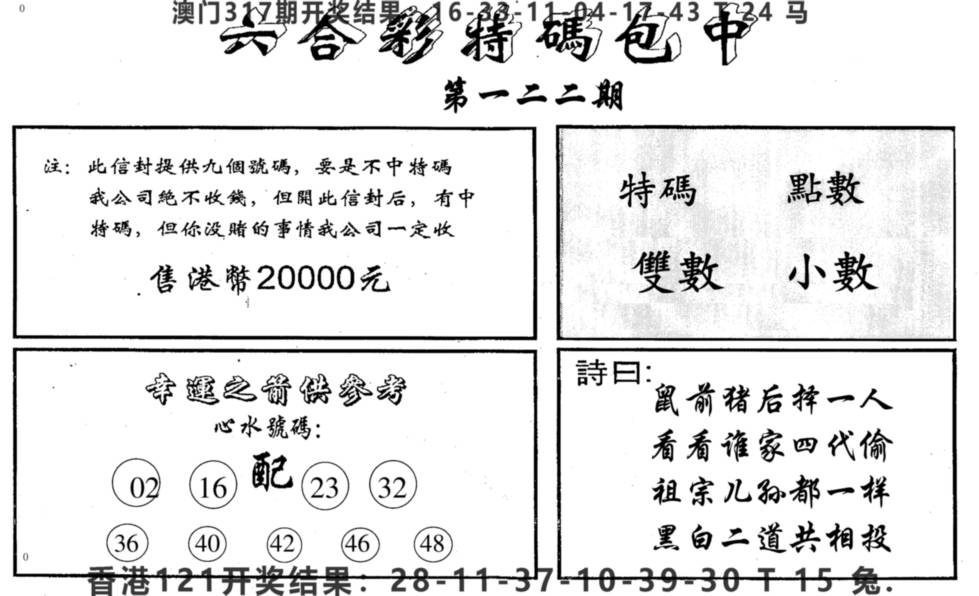 0
澳门317期开奖结果：16-33-11-04-17-43 T 24 马
六合彩特碼包中
第一二二期
注：此信封提供九個號碼，要是不中特碼
我公司絶不收錢，但開此信封后，有中
特碼，但你没賭的事情我公司一定收
售港幣20000元
特碼 點數
雙數 小數
幸運之前供參考
心水號碼：
配
02 16 23 32
36 40 42 46 48
詩曰:
鼠前猪后择一人
看看谁家四代偷
祖宗儿孙都一样
黑白二道共相投
0
香港121开奖结果：28-11-37-10-39-30 T 15 兔.